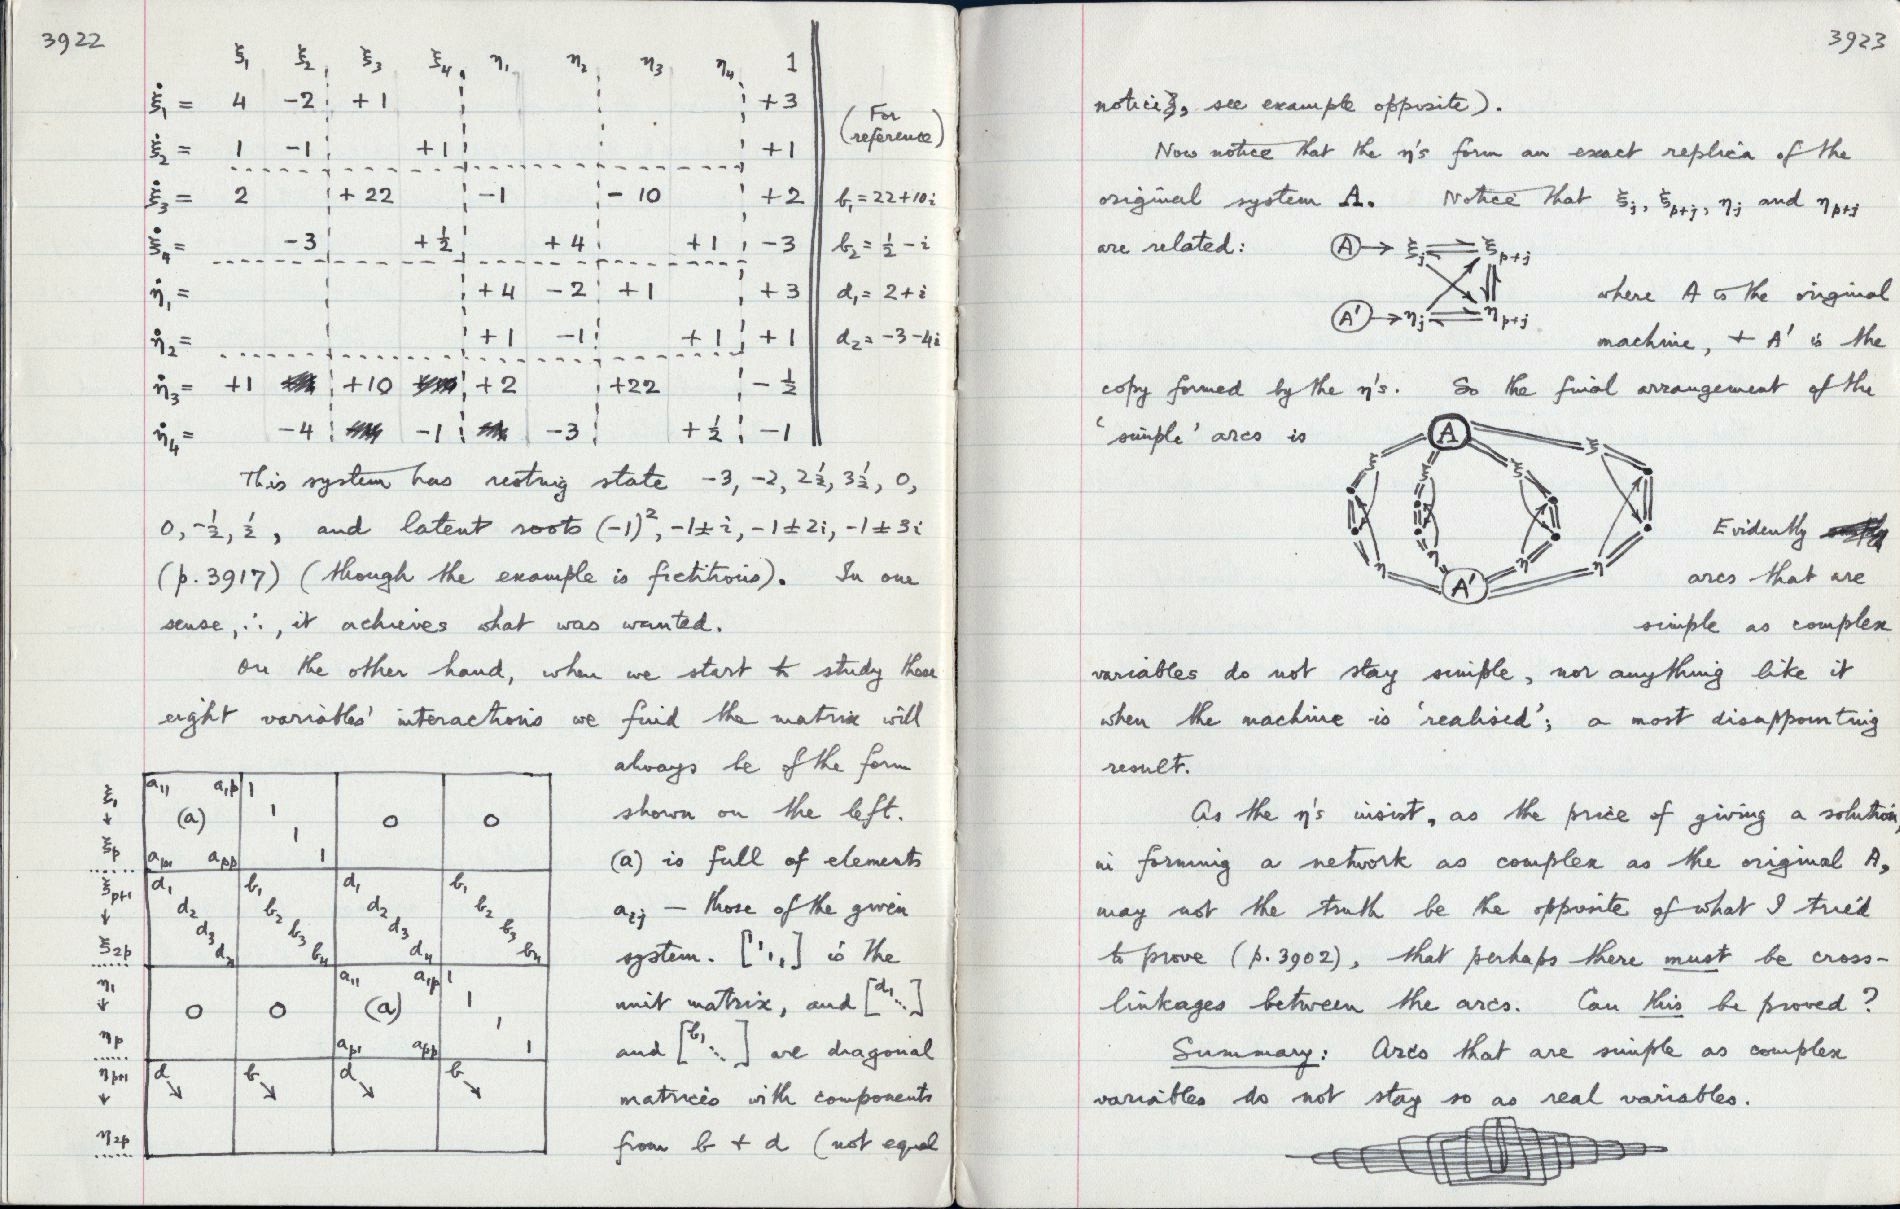 3922
ξ₁ ξ₂ ξ₃ ξ₄ η₁ η₂ η₃ η₄ 1
ξ̇₁ = 4 -2 +1 +3
(For reference)
ξ̇₂ = 1 -1 +1 +1
ξ̇₃ = 2 +22 -1 -10 +2 b₁=22+10i
ξ̇₄ = -3 +½ +4 +1 -3 b₂=½-i
η̇₁ = +4 -2 +1 +3 d₁=2+i
η̇₂ = +1 -1 +1 +1 d₂=-3-4i
η̇₃ = +1 +10 +2 +22 -½
η̇₄ = -4 -1 -3 +½ -1
This system has resting state -3, -2, 2½, 3½, 0,
0, -½, ½, and latent roots (-1)², -1±i, -1±2i, -1±3i
(p.3917) (though the example is fictitious). In one
sense, ∴, it achieves what was wanted.
On the other hand, when we start to study these
eight variables' interactions we find the matrix will
always be of the form
shown on the left.
(a) is full of elements
aᵢⱼ — those of the given
system. [1 1 1] is the
unit matrix, and [d₁...]
and [b₁...] are diagonal
matrices with components
from b + d (not equal
ξ₁ ↓ ξp a₁₁ a₁p (a) ap₁ app 1 1 1 1 0 0
ξp+1 ↓ ξ2p d₁ d₂ d₃ d₄ b₁ b₂ b₃ b₄ d₁ d₂ d₃ d₄ b₁ b₂ b₃ b₄
η₁ ↓ ηp 0 0 a₁₁ a₁p (a) ap₁ app 1 1 1 1
ηp+1 ↓ η2p d ↘ b ↘ d ↘ b ↘
3923
notice, see example opposite).
Now notice that the η's form an exact replica of the
original system A. Notice that ξⱼ, ξp+j, ηⱼ and ηp+j
are related: A → ξⱼ ξp+j
A' → ηⱼ ηp+j
where A is the original
machine, + A' is the
copy formed by the η's. So the final arrangement of the
'simple' arcs is
A ξ ξ ξ ξ
η η η η A'
Evidently
arcs that are
simple as complex
variables do not stay simple, nor anything like it
when the machine is 'realised'; a most disappointing
result.
As the η's insist, as the price of giving a solution,
in forming a network as complex as the original A,
may not the truth be the opposite of what I tried
to prove (p.3902), that perhaps there must be cross-
linkages between the arcs. Can this be proved?
Summary: Arcs that are simple as complex
variables do not stay so as real variables.